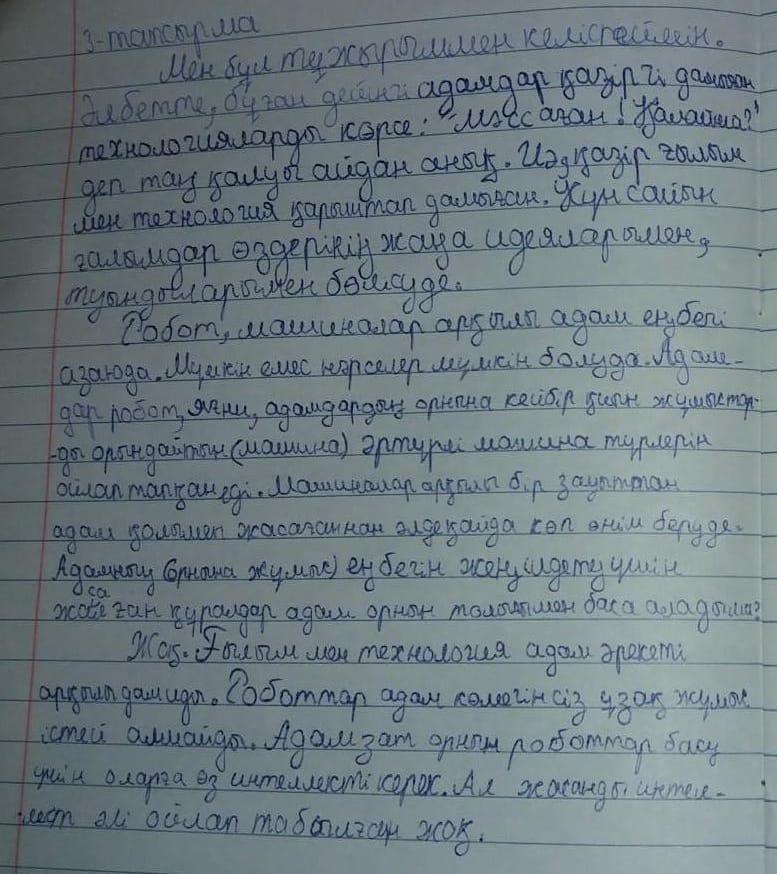 3-тапсырма
Мен бұл тұжырыммен келіспеймін.
Әлбетте, бұған дейінгі адамдар қазіргі дамыған
технологияларды көрсе: "Мәссаған! Қалайша?"
деп таң қалуы айдан анық. Иә, қазір ғылым
мен технология қарыштап дамыған. Күн сайын
ғалымдар өздерінің жаңа идеяларымен,
туындыларымен бөлісуде.
Робот, машиналар арқылы адам еңбегі
азаюда. Мүмкін емес нәрселер мүмкін болуда. Адам-
дар робот, яғни, адамдардың орнына кейбір қиын жұмыстар-
-ды орындайтын (машина) әртүрлі машина түрлерін
ойлап тапқан еді. Машиналар арқылы бір зауыттан
адам қолымен жасағаннан әлдеқайда көп өнім беруде.
Адамның (орнына жұмыс) еңбегін жеңілдету үшін
жасаған құралдар адам орнын толығымен баса алады ма?
Жоқ. Ғылым мен технология адам әрекеті
арқылы дамиды. Роботтар адам көмегінсіз ұзақ жұмыс
істей алмайды. Адамзат орнын роботтар басу
үшін оларға өз интеллекті керек. Ал жасанды интел-
лект әлі ойлап табылған жоқ.